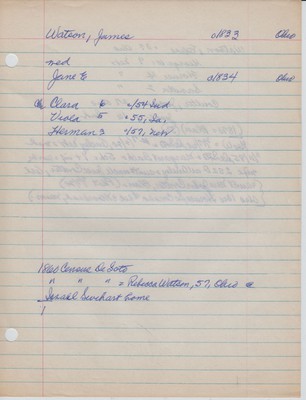 Watson, James c1833 Ohio
med
Jane E c1834 Ohio
ch Clara 6 c/54 Ind
Viola 5 c55, Ia,
Herman 3 c/57, Wis
1860 Census De Soto
" " " = Rebecca Watson, 57, Ohio @
Israel Swihart home